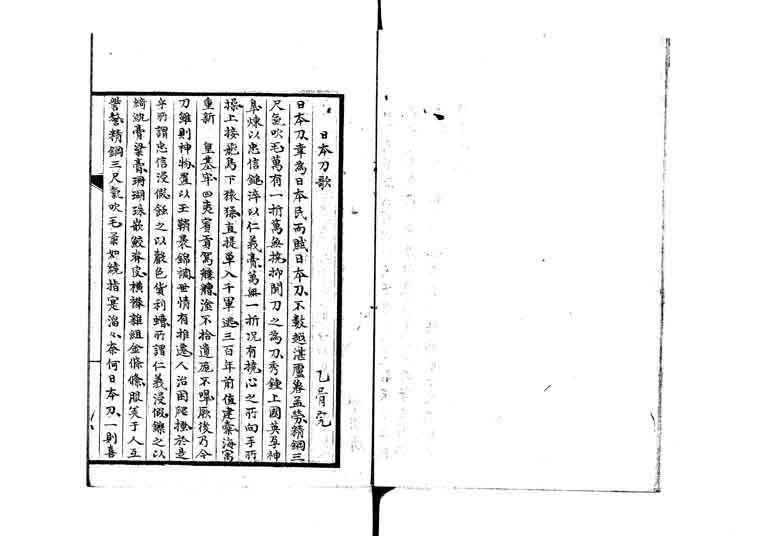 日本刀歌
乙骨完
日本刀、幸為日本民而賦日本刀、不數越湛盧魯孟勞、精鋼三
尺氣吹毛、萬有一折萬無撓、抑聞刀之為刀、秀鍾上國英孕神
皐、煉以忠信鎚、淬以仁義膏、萬無一折況有撓、心之所向手所
操、上接飛鳥下猿猱、直提單入千軍逃、三百年前值建櫜、海寓
重新 皇基牢、四夷賓貢駕艛艚、塗不拾遺厖不嘷、厥後乃今
刀雖則神物、置以玉鞘褁錦韜、世情有推遷、人治困爬搔、於是
乎所謂忠信浸假蝕之以聲色貨利螬、所謂仁義浸假鑠之以
綺紈膏粱膏、珊瑚珠嵌鮫脊皮、橫襻雜組金絛絛、服美于人互
譽熬、精鋼三尺氣吹毛、柔如繞指寔滔滔、奈何日本刀、一則喜